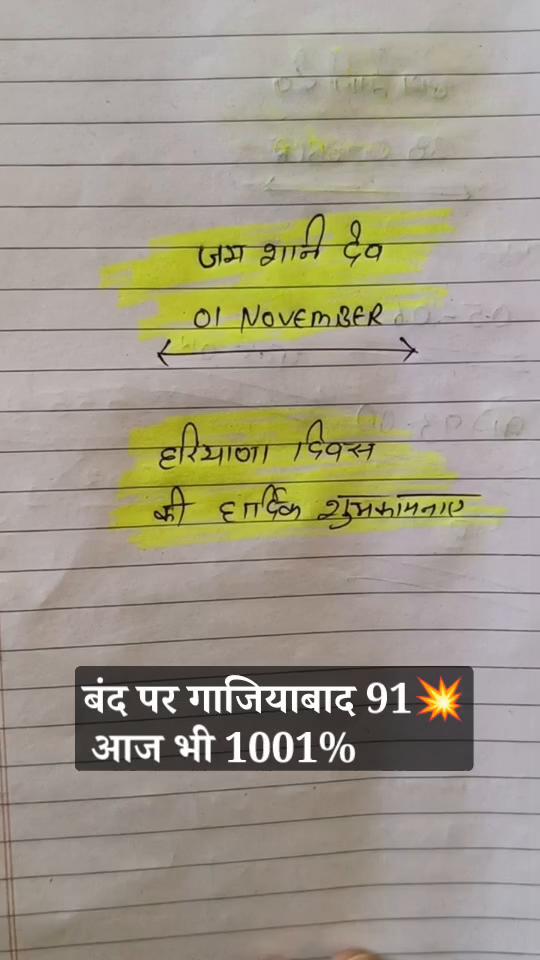 जय शनि देव
01 NOVEMBER
हरियाणा दिवस
की हार्दिक शुभकामनाए
बंद पर गाजियाबाद 91💥
आज भी 1001%